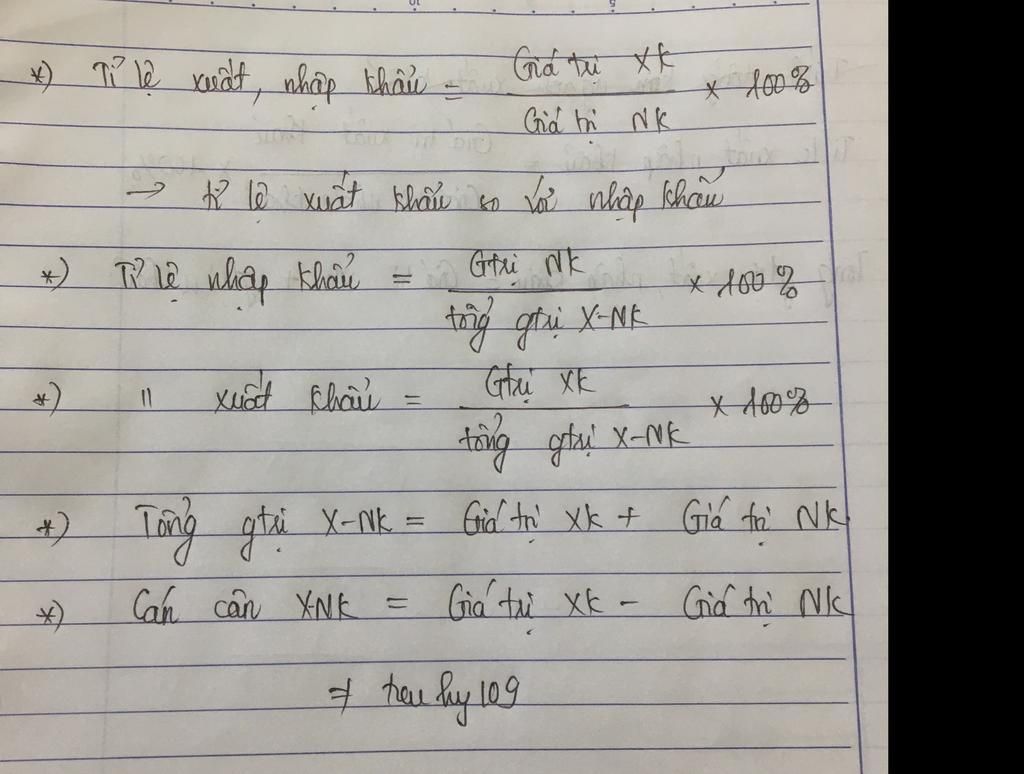 *) Tỉ lệ xuất, nhập khẩu = Giá trị XK / Giá trị NK x 100%
→ tỉ lệ xuất khẩu so với nhập khẩu
*) Tỉ lệ nhập khẩu = Gtrị NK / tổng gtrị X-NK x 100%
*) " xuất khẩu = Gtrị XK / tổng gtrị X-NK x 100%
*) Tổng gtrị X-NK = Giá trị XK + Giá trị NK
*) Cán cân X-NK = Giá trị XK - Giá trị NK
⇒ treu hy 109